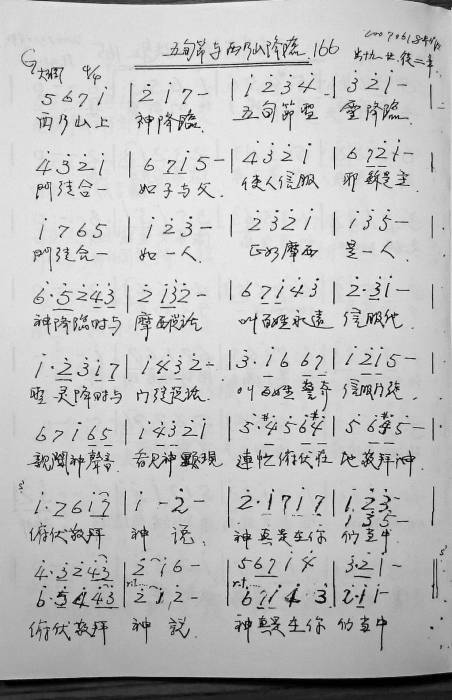 五旬節与西乃山降臨 166
20070618
出十九廿,徒二章
G大調 4/4
5 6 7 i | 2 i 7 - | i 2 3 4 | 3 2 i - |
西乃山上 神降臨. 五旬節聖 靈降臨.
4 3 2 i | 6 7 i 5 - | 4 3 2 i | 6 7 2 i - |
門徒合一 如子与父. 使人信服 耶穌是主
i 7 6 5 | i 2 3 - | 2 3 2 i | i 3 5 - |
門徒合一 如一人. 正如摩西 是一人.
6·5 2 4 3 | 2 i 3 2 - | 6 7 i 4 3 | 2·3 i - |
神降臨時与 摩西說論 叫百姓永遠 信服他.
i·2 3 i 7 | i 4 3 2 - | 3·i 6 6 7 | i 2 i 5 - |
聖灵降時与 門徒說話. 叫百姓 信服門徒.
6 7 i 6 5 | i 4 3 2 i | 5·#4 5 6 #4 | 5 6 #4 5 - |
親聞神聲音. 看見神顯現 連忙俯伏在 地敬拜神.
i·7 6 i 7 | i - 2 - | 2·i 7 i 7 | i 2 3 -
i 3 5 -
俯伏敬拜 神說. 神真是在你 們當中
4·3 2 4 3 | 2 i 6 - | 5 6 7 i 4 | 3·2 i -
rit... rit...
6·5 4 4 3 | 2 i 2 - | 6 7 i 4 3 | 2·i i -
俯伏敬拜 神說. 神真是在你 們當中